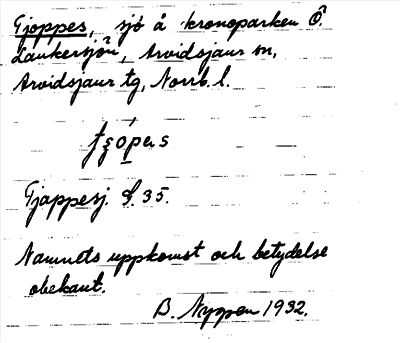 Tjoppes, sjö å kronoparken Ö.
Lankersjön, Arvidsjaur sn,
Arvidsjaur tg, Norrb. l.
Tjappesj. G. 35.
Namnets uppkomst och betydelse
obekant.
B. Nyppen 1932.